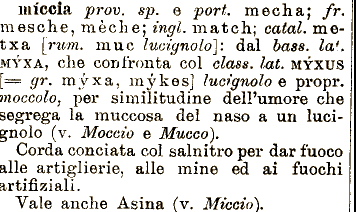 míccia prov. sp. e port. mecha; fr.
mesche, mèche; ingl. match; catal. me-
txa [rum. muc lucignolo]: dal bass. lat.
MÝXA, che confronta col class. lat. MÝXUS
[= gr. mýxa, mýkes] lucignolo e propr.
moccolo, per similitudine dell'umore che
segrega la muccosa del naso a un luci-
gnolo (v. Moccio e Mucco).
Corda conciata col salnitro per dar fuoco
alle artiglierie, alle mine ed ai fuochi
artifiziali.
Vale anche Asina (v. Miccio).